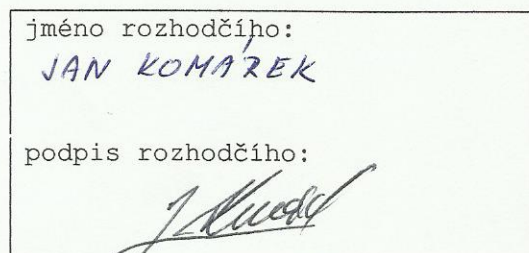 jméno rozhodčího:
JAN KOMÁREK
podpis rozhodčího: